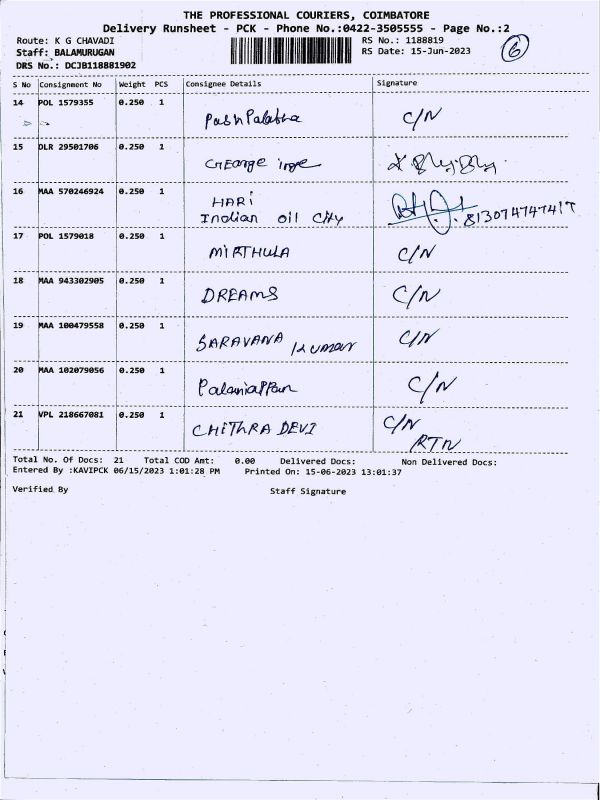 THE PROFESSIONAL COURIERS, COIMBATORE
Delivery Runsheet - PCK - Phone No.:0422-3505555 - Page No.:2
Route: K G CHAVADI
RS No.: 1188819
Staff: BALAMURUGAN
RS Date: 15-Jun-2023
6
DRS No.: DCJB118881902
S No Consignment No Weight PCS Consignee Details Signature
14 POL 1579355 0.250 1 C/N
15 DLR 29501706 0.250 1 GEorge
16 MAA 570246924 0.250 1 HARI
Indian oil City
17 POL 1579018 0.250 1 MIRTHULA C/N
18 MAA 943302905 0.250 1 DREAMS C/N
19 MAA 100479558 0.250 1 SARAVANA KUMAR C/N
20 MAA 102079056 0.250 1 Palaniappan C/N
21 VPL 218667081 0.250 1 CHITHRA DEVI C/N
RTN
Total No. Of Docs: 21 Total COD Amt: 0.00 Delivered Docs: Non Delivered Docs:
Entered By :KAVIPCK 06/15/2023 1:01:28 PM Printed On: 15-06-2023 13:01:37
Verified By Staff Signature